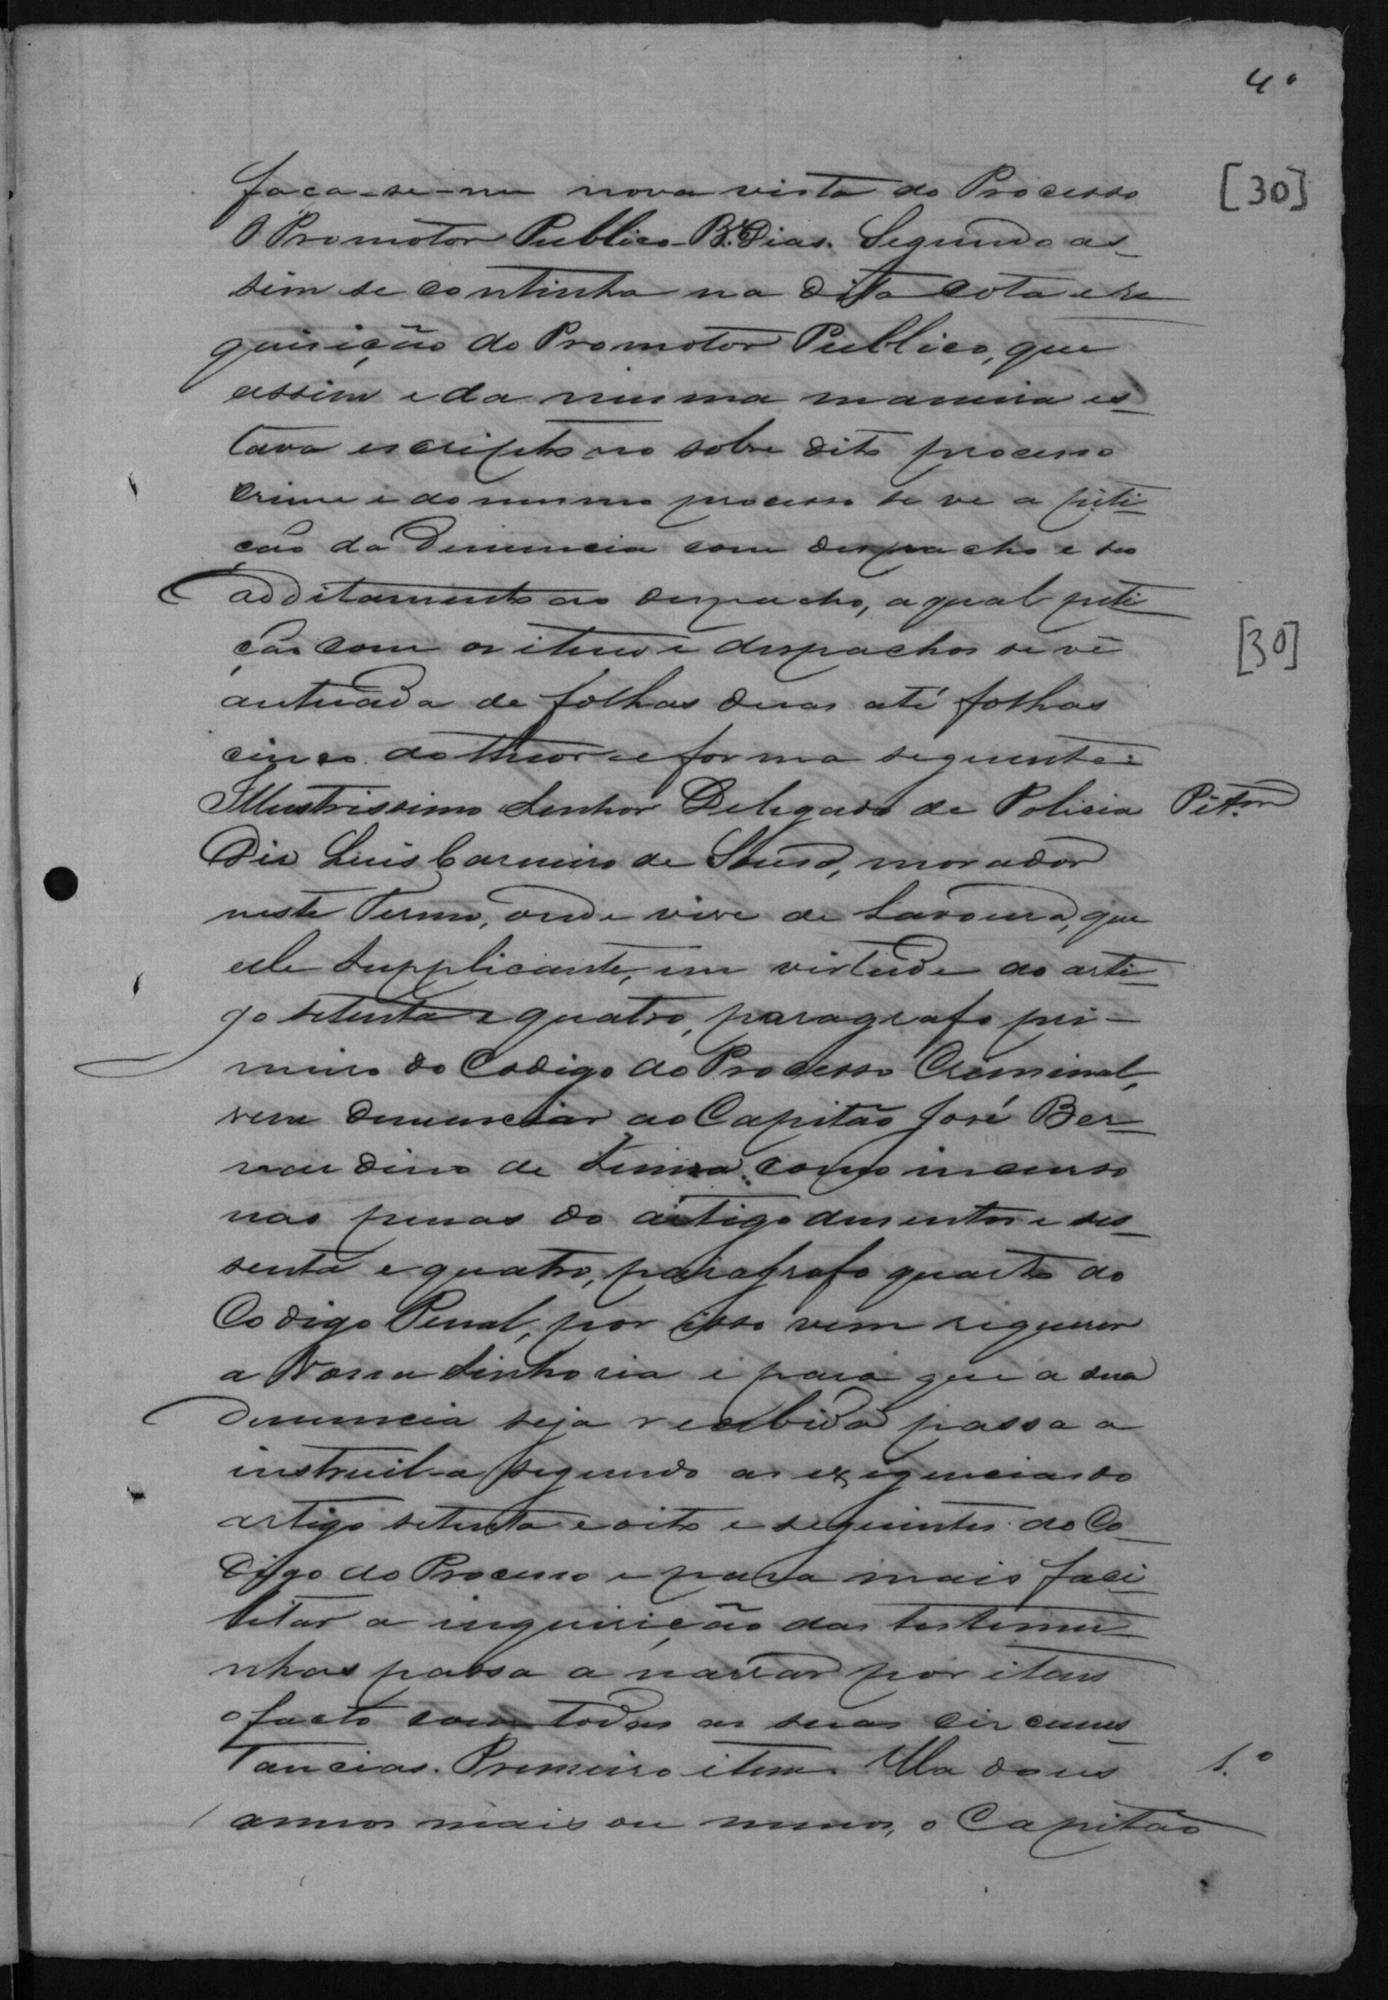 4º
faca-se-me nova vista do Processo [30]
O Promotor Publico B. Dias. Segundo as-
sim se continha na dita cota e re
quisição do Promotor Publico, que
assim e da mesma maneira es-
tava escripto no sobre dito processo
crime e do mesmo processo se ve a peti-
ção da Denuncia com despacho e seo
additamento ao despacho, a qual peti-
ção com os itens e despachos se vê [30]
autuada de folhas duas até folhas
cinco do theor e forma seguinte:
Illustrissimo Senhor Delegado de Policia Petm
Diz Luis Carneiro de Sousa, morador
neste Termo, onde vive de Lavoura, que
elle Supplicante, em virtude do arti-
go setenta e quatro, paragrafo pri-
meiro do Codigo do Processo Criminal,
vem denunciar ao Capitão José Ber-
nardino de como incurso
nas penas do artigo dusentos e ses-
senta e quatro, paragrafo quarto do
Codigo Penal, por isso vem riquerer
a Vossa Sinhoria e para que a sua
Denuncia seja recebida passa a
instruil-a segundo as exigencias do
artigo setenta e oito e seguintes do Co-
digo do Processo e para mais faci-
litar a inquirição das testemu-
nhas passa a narrar por itens
o facto com todas as suas circuns-
tancias. Primeiro item. Ha dous 1.º
annos mais ou menos, o Capitão